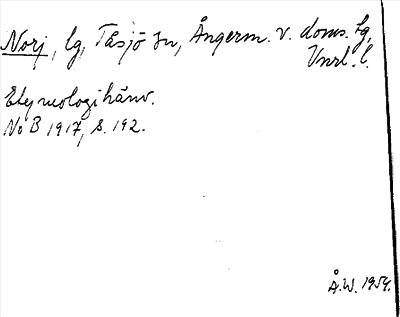 Norj, lg, Tåsjö sn, Ångerm. v. doms. lg,
Vnrl. l.
Etymologihänv.
NoB 1917, s. 192.
Å.W. 1954.